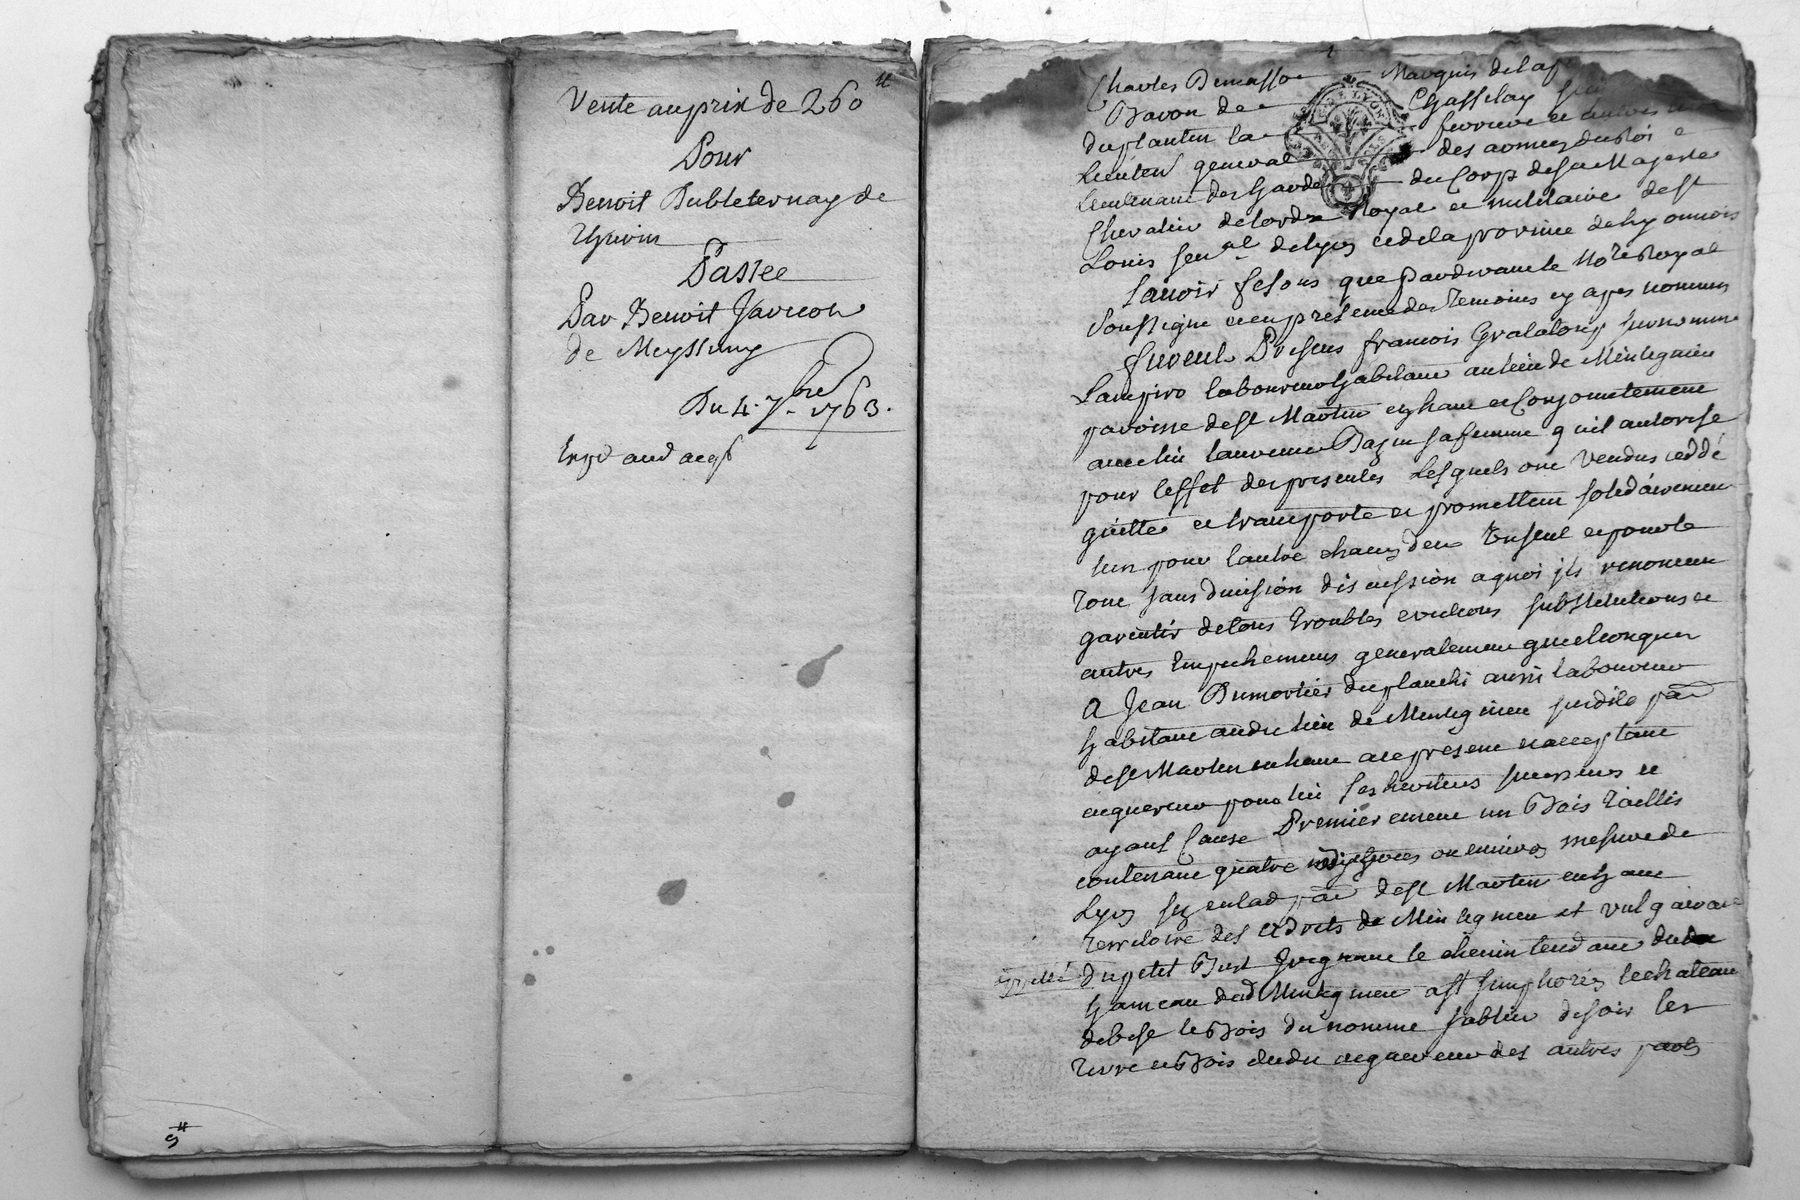 Vente au prix de 260 ₶
Pour
Benoit Dubleternay de
Thurin
Passee
Par Benoit Jaricot
de Meyssimy
Du 4. 7bre 1763.
9₶
Charles Demasso Marquis de la
Baron de Chasselay
du plantin la ferriere et autres
Lieuten general des armees du Roi
Lieutenant des Gardes du Corps de sa Majeste
Chevalier de lordre Royal et militaire de st
Louis sen.al de Lyon et de la province de Lyonnois
savoir fesons que pardevant le No.re Royal
soussigne et en presence des temoins cy apres nommes
furent Presens francois Gralaloup surnomme
Lampiro laboureur habitant au lieu de Mintignieu
paroisse de st Martin en haut et Conjointement
avec lui laurence Bazin sa femme quil autorise
pour leffet des presentes Lesquels ont vendus ceddé
quitté et transporté et promettent solidairement
lun pour lautre chacun deux En seul et pour le
tout sans division discussion a quoi ils renoncent
garentir de tous troubles evictions substitutions et
autres Empechemens generalement quelconques
A Jean Dumortier du planchi aussi laboureur
habitant audit lieu de Mintignieu susdite par
de st Martin en haut ace present et acceptant
acquereur pour lui ses heritiers successeurs et
ayant Cause Premierement un Bois taillis
contenant quatre ou environ mesure de
Lyon sis en lad par de st Martin en haut
territoire des de Mintignieu et vulgairant
appellé du petit Bust Joignant le chemin tendant dudit
hameau dud Mintignieu a st simphorien le chateau
de bise le Bois du nomme sablier de soir les
terre et Bois dudit acquereur des autres parts